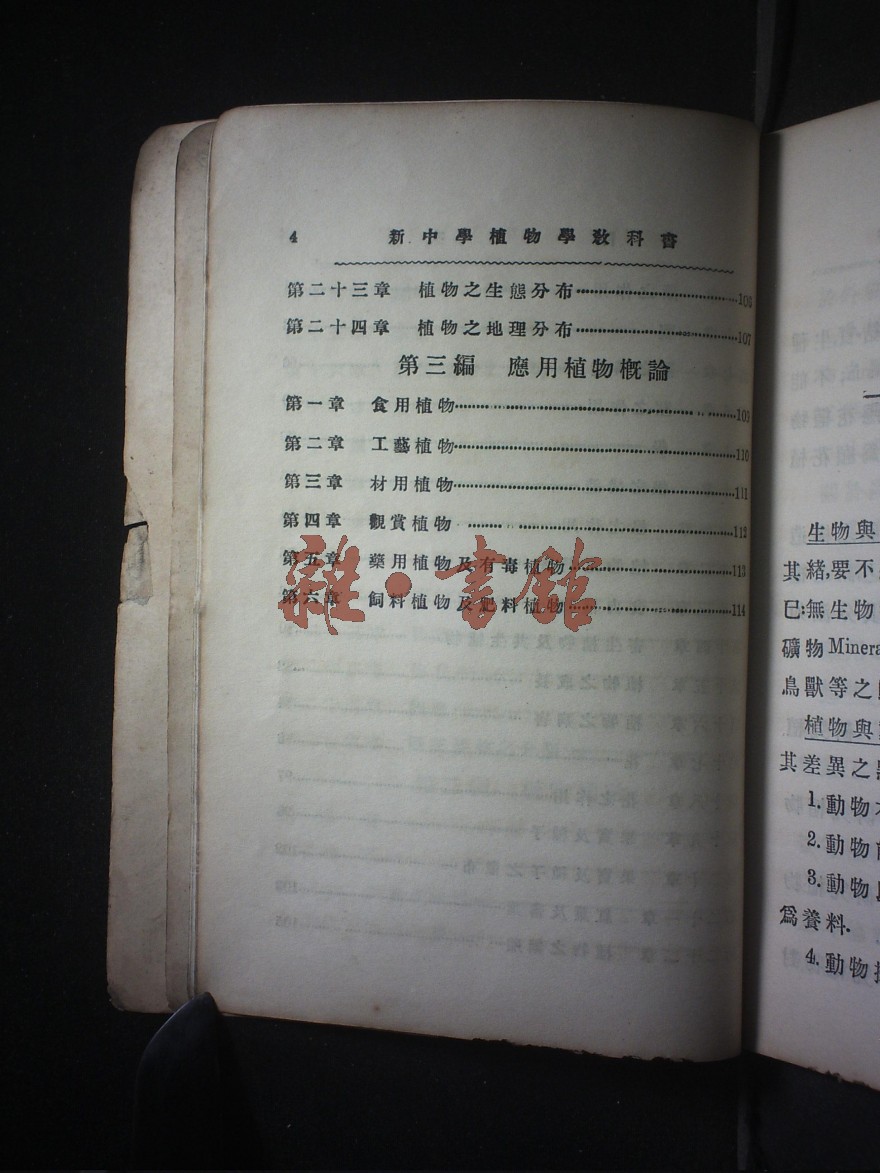 4 新中學植物學教科書
第二十三章 植物之生態分布 106
第二十四章 植物之地理分布 107
第三編 應用植物概論
第一章 食用植物 109
第二章 工藝植物 110
第三章 材用植物 111
第四章 觀賞植物 112
第五章 藥用植物及有毒植物 113
第六章 飼料植物及肥料植物 114
雜·書館
生物與
其緒,要不
巳:無生物
礦物 Minera
鳥獸等之
植物與
其差異之
1.動物
2.動物
3.動物
爲養料.
4.動物